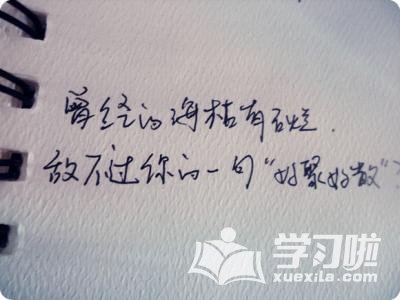 曾经的海枯石烂.
敌不过你的一句“好聚好散”
学习啦
xuexila.com